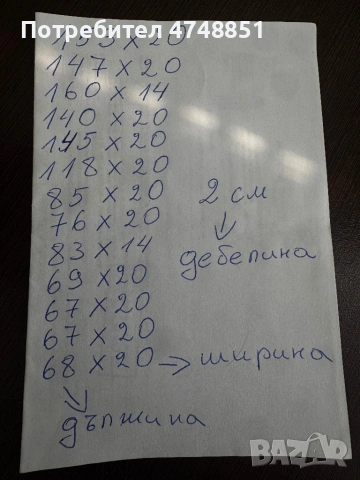 Потребител 4748851
153 x 20
147 x 20
160 x 14
140 x 20
145 x 20
118 x 20
85 x 20
76 x 20
83 x 14
69 x 20
67 x 20
67 x 20
68 x 20 → ширина
2 см
дебелина
дължина
bazar